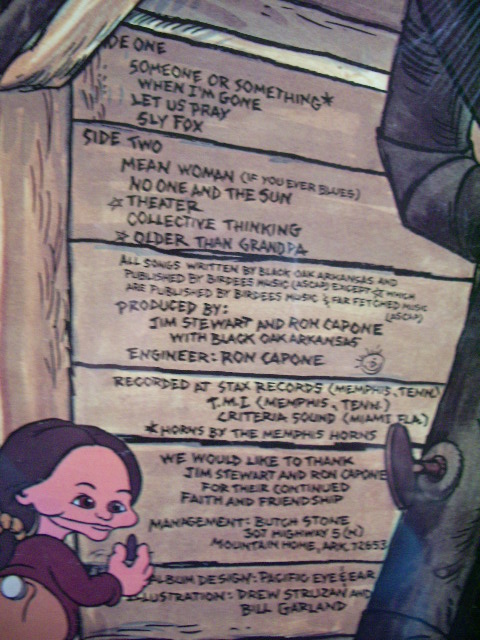 DE ONE
SOMEONE OR SOMETHING*
WHEN I'M GONE
LET US PRAY
SLY FOX
SIDE TWO
MEAN WOMAN (IF YOU EVER BLUES)
NO ONE AND THE SUN
☆ THEATER
COLLECTIVE THINKING
☆ OLDER THAN GRANDPA
ALL SONGS WRITTEN BY BLACK OAK ARKANSAS AND
PUBLISHED BY BIRDEES MUSIC (ASCAP) EXCEPT ☆ WHICH
ARE PUBLISHED BY BIRDEES MUSIC & FAR FETCHED MUSIC
(ASCAP)
PRODUCED BY:
JIM STEWART AND RON CAPONE
WITH BLACK OAK ARKANSAS
ENGINEER: RON CAPONE
RECORDED AT STAX RECORDS (MEMPHIS, TENN.)
T.M.I (MEMPHIS, TENN.)
CRITERIA SOUND (MIAMI FLA.)
*HORNS BY THE MEMPHIS HORNS
WE WOULD LIKE TO THANK
JIM STEWART AND RON CAPONE
FOR THEIR CONTINUED
FAITH AND FRIENDSHIP
MANAGEMENT: BUTCH STONE
307 HIGHWAY 5 (N)
MOUNTAIN HOME, ARK. 72653
LBUM DESIGN: PACIFIC EYE & EAR
LUSTRATION: DREW STRUZAN AND
BILL GARLAND